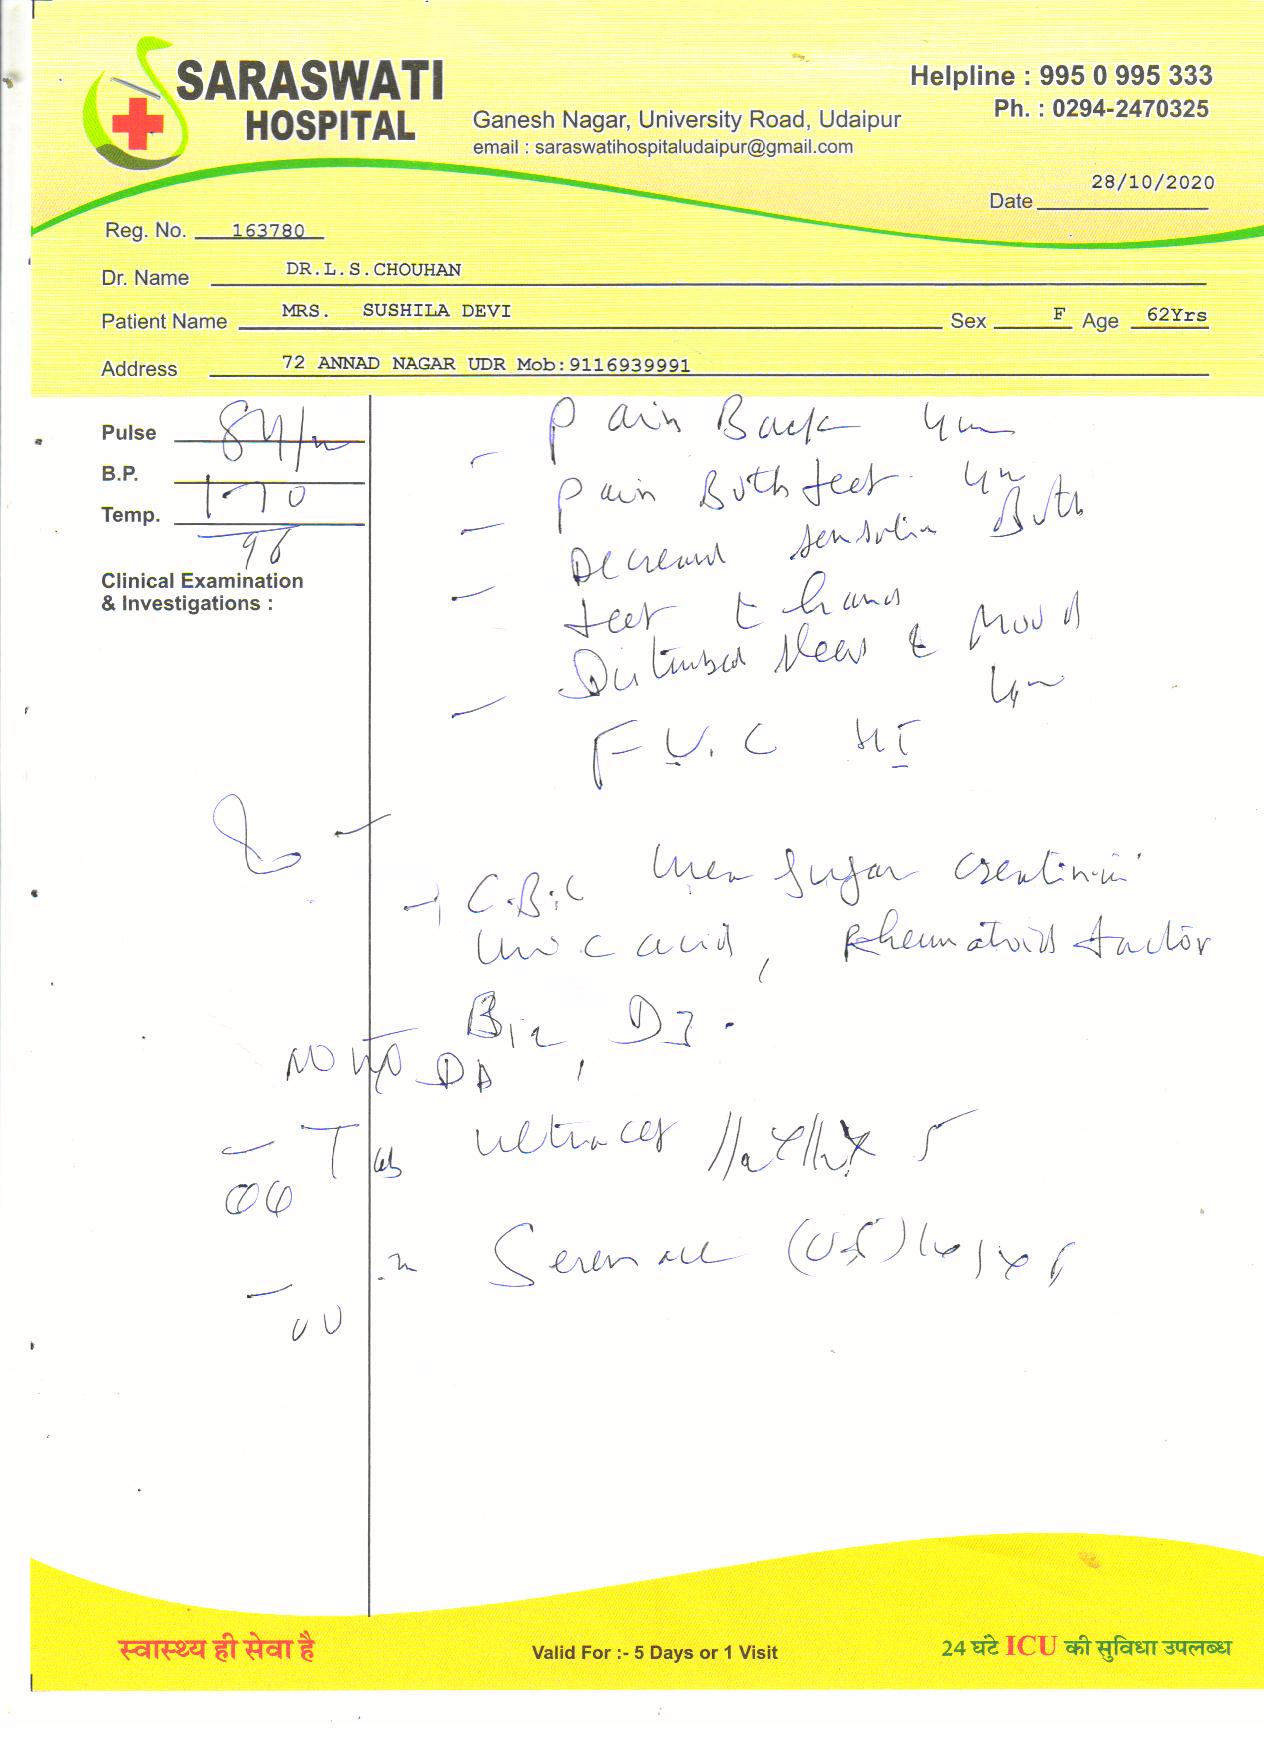 SARASWATI
HOSPITAL
Ganesh Nagar, University Road, Udaipur
email : saraswatihospitaludaipur@gmail.com
Helpline : 995 0 995 333
Ph. : 0294-2470325
Date 28/10/2020
Reg. No. 163780
Dr. Name DR.L.S.CHOUHAN
Patient Name MRS. SUSHILA DEVI Sex F Age 62Yrs
Address 72 ANNAD NAGAR UDR Mob:9116939991
Pulse 84/m
B.P. 170
Temp. 98
Clinical Examination
& Investigations :
Pain Back
Pain Both feet
Decreased sensation Both
feet hand
Disturbed Mood
F.U.C
C.B.C Urea Sugar Creatinin
Uric acid, Rheumatoid factor
B12, D3
Tab Ultracet 1/2 x 1/2 x 5
Serenace (0.5) 1 x 5
स्वास्थ्य ही सेवा है
Valid For :- 5 Days or 1 Visit
24 घंटे ICU की सुविधा उपलब्ध